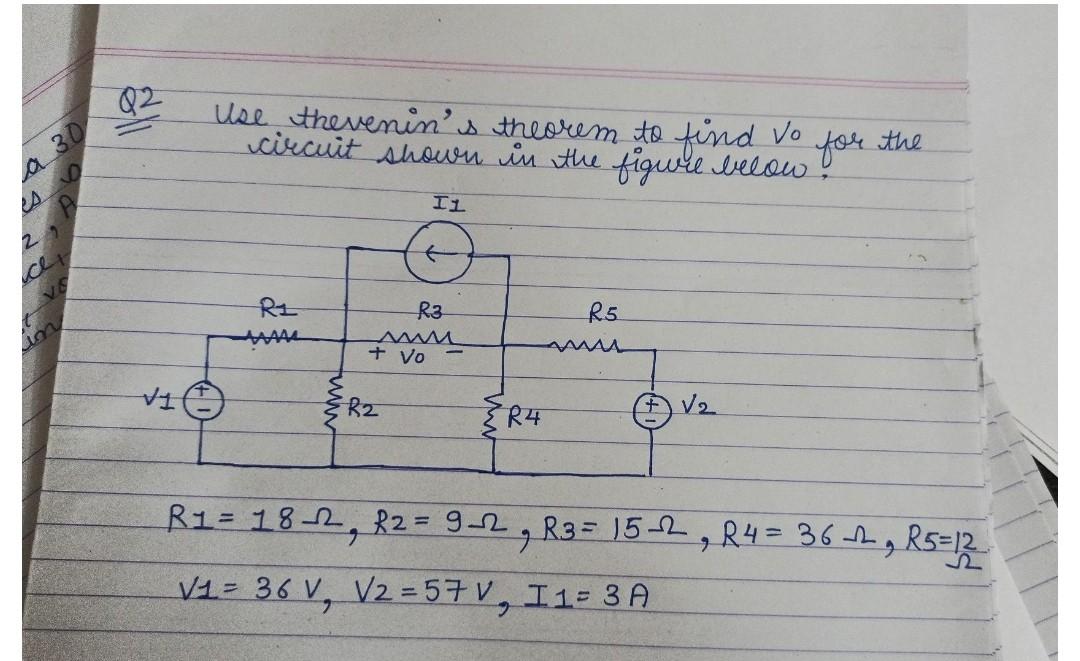 Q2 Use thevenin's theorem to find Vo for the
circuit shown in the figure below.
I1
R1 R3 R5
+ Vo -
V1 + - R2 R4 + - V2
R1 = 18 Ω, R2 = 9 Ω, R3 = 15 Ω, R4 = 36 Ω, R5=12
Ω
V1 = 36 V, V2 = 57 V, I1 = 3 A
a 30
es
2, A